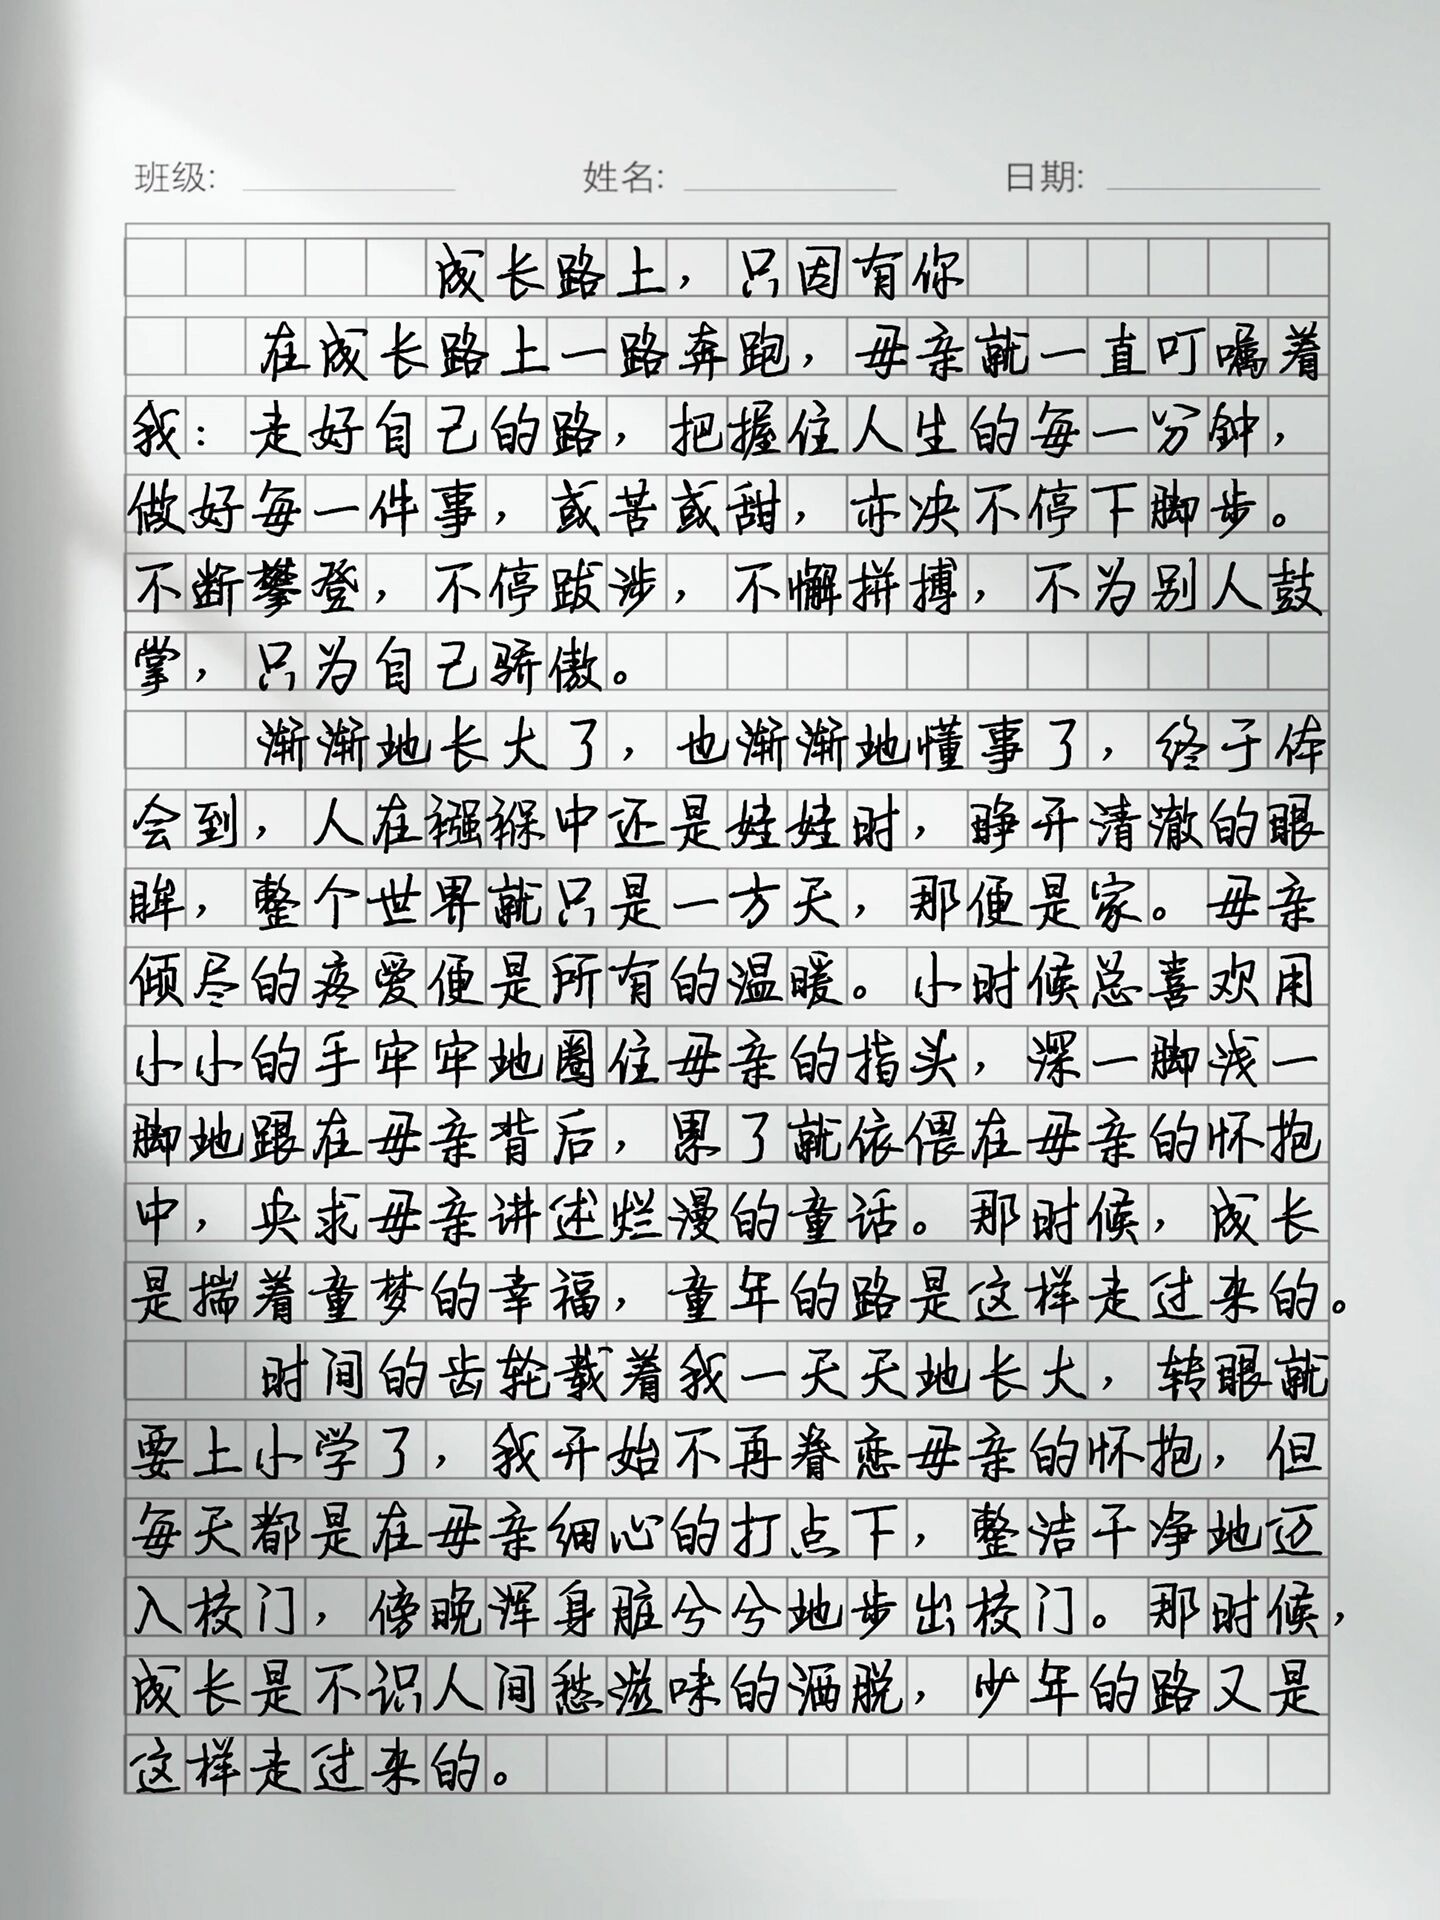 班级: 姓名: 日期:
成长路上，只因有你
在成长路上一路奔跑，母亲就一直叮嘱着
我：走好自己的路，把握住人生的每一分钟，
做好每一件事，或苦或甜，亦决不停下脚步。
不断攀登，不停跋涉，不懈拼搏，不为别人鼓
掌，只为自己骄傲。
渐渐地长大了，也渐渐地懂事了，终于体
会到，人在襁褓中还是娃娃时，睁开清澈的眼
眸，整个世界就只是一方天，那便是家。母亲
倾尽的疼爱便是所有的温暖。小时候总喜欢用
小小的手牢牢地圈住母亲的指头，深一脚浅一
脚地跟在母亲背后，累了就依偎在母亲的怀抱
中，央求母亲讲述烂漫的童话。那时候，成长
是揣着童梦的幸福，童年的路是这样走过来的。
时间的齿轮载着我一天天地长大，转眼就
要上小学了，我开始不再眷恋母亲的怀抱，但
每天都是在母亲细心的打点下，整洁干净地迈
入校门，傍晚浑身脏兮兮地步出校门。那时候，
成长是不识人间愁滋味的洒脱，少年的路又是
这样走过来的。